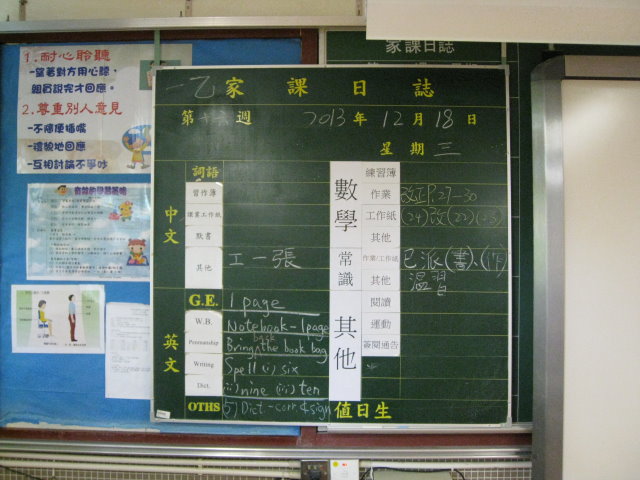 1.耐心聆聽
-望著對方用心聽,
組員說完才回應。
2.尊重別人意見
-不隨便插嘴
-禮貌地回應
-互相討論不爭吵
家課日誌
一乙家課日誌
第十六週 2013年12月18日
星期三
中文
詞語
習作簿
默書
其他 工一張
英文
G.E. 1 page
W.B. Notebook - 1page
Penmanship Bring back the book bag
Writing Spell (i) six
Dict. (ii) nine (iii) ten
OTHS (5) Dict - corr. & sign
數學
練習簿
作業 改正P.27-30
工作紙 (24) 改(22)(23)
其他
常識
作業/工作紙 已派(書)
其他 溫習
其他
閱讀
運動
簽閱通告
值日生